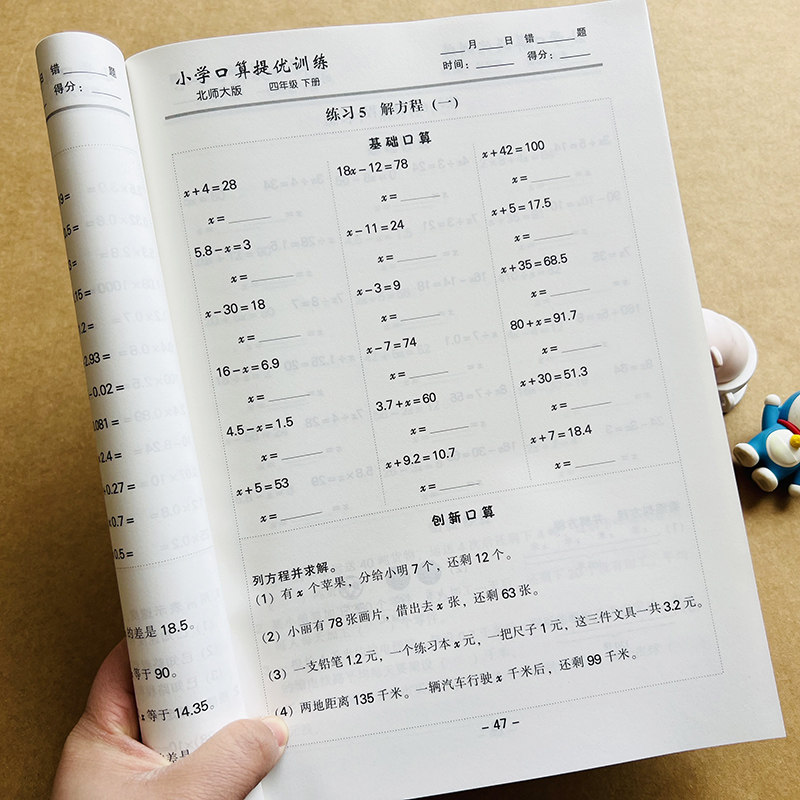 错______题
得分：______
9=
.5=
3=
15=
.2=
2.93=
-0.02=
.081=
2.4=
-0.27=
×0.7=
0.5=
的差是 18.5。
等于 90。
x 等于 14.35。
差是
小学口算提优训练
北师大版 四年级 下册
____月____日 错______题
时间：______ 得分：______
练习 5 解方程（一）
基础口算
x+4=28
x=______
5.8-x=3
x=______
x-30=18
x=______
16-x=6.9
x=______
4.5-x=1.5
x=______
x+5=53
x=______
18x-12=78
x=______
x-11=24
x=______
x-3=9
x=______
x-7=74
x=______
3.7+x=60
x=______
x+9.2=10.7
x=______
x+42=100
x=______
x+5=17.5
x=______
x+35=68.5
x=______
80+x=91.7
x=______
x+30=51.3
x=______
x+7=18.4
x=______
创新口算
列方程并求解。
（1）有 x 个苹果，分给小明 7 个，还剩 12 个。
（2）小丽有 78 张画片，借出去 x 张，还剩 63 张。
（3）一支铅笔 1.2 元，一个练习本 x 元，一把尺子 1 元，这三件文具一共 3.2 元。
（4）两地距离 135 千米。一辆汽车行驶 x 千米后，还剩 99 千米。
- 47 -